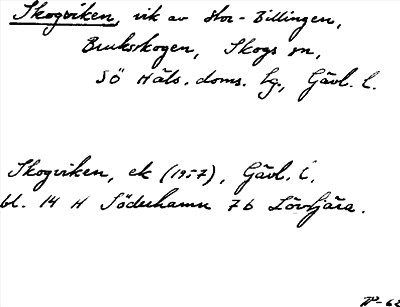 Skogviken, vik av Stor-Billingen,
Bruksskogen, Skogs sn,
SÖ Häls. doms. lg., Gävl. l.
Skogviken, ek (1957), Gävl. l.
bl. 14 H Söderhamn 7b Lövtjära.
IV-62